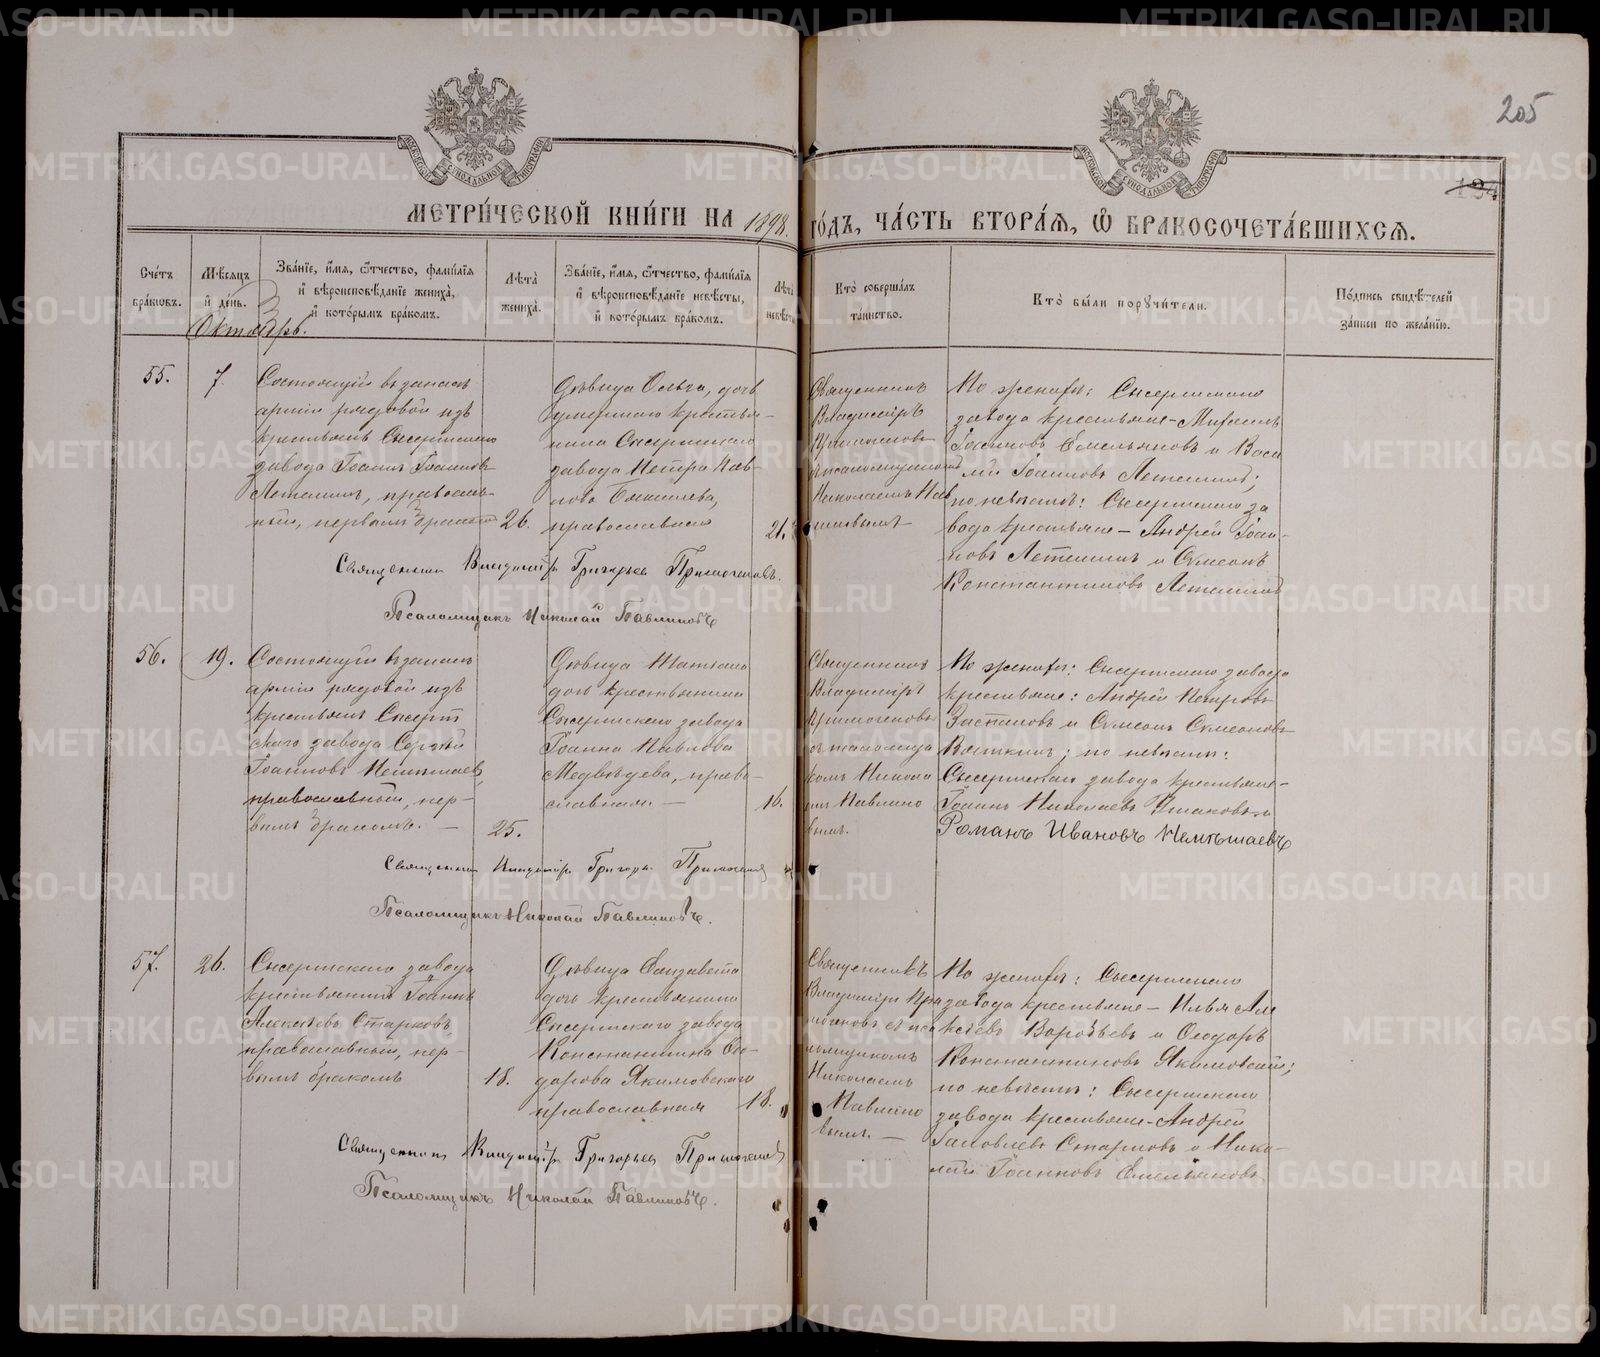 205
МЕТРИ́ЧЕСКОЙ КНИ́ГИ НА 1898. ГО́ДЪ, ЧА́СТЬ ВТОРА́Я, Ѿ БРАКОСОЧЕТА́ВШИХСЯ.
Сче́тъ бра́ковъ.
Мѣ́сяцъ и́ де́нь.
Зва́нїе, и҆́мя, ѻ҆́тчество, фами́лїя и҆ вѣроисповѣ́данїе жениха̀, и҆ кото́рымъ бра́комъ.
Лѣ́та̀ жениха̀.
Зва́нїе, и҆́мя, ѻ҆́тчество, фами́лїя и҆ вѣроисповѣ́данїе невѣ́сты, и҆ кото́рымъ бра́комъ.
Лѣ́та̀ невѣ́сты
Кто̀ соверша́лъ та́инство.
Кто̀ бы́ли пору́чи́тели.
По́дпись свидѣ́телей за́писи по жела́нїю.
Октябрь.
55.
7.
Состоящій въ запасѣ
арміи рядовой изъ
крестьянъ Сысертскаго
завода Іоаннъ Іоанновъ
Летеминъ, православ-
ный, первымъ бракомъ
26.
Дѣвица Ольга, дочь
умершаго крестья-
нина Сысертскаго
завода Петра Пав-
лова
православная
21.
Священникъ
Владиміръ
Примогеновъ
съ псаломщикомъ
Николаемъ Пав
линовымъ
По женихѣ: Сысертскаго
завода крестьяне - Михаилъ
Іоанновъ Емельяновъ и Васи
лій Іоанновъ Летеминъ;
по невѣстѣ: Сысертскаго за
вода крестьяне - Андрей Іоан-
новъ Летеминъ и Симеонъ
Константиновъ Летеминъ
Священникъ Владиміръ Григорьев Примогеновъ.
Псаломщикъ Николай Павлиновъ
56.
19.
Состоящій въ запасѣ
арміи рядовой изъ
крестьянъ Сысерт
скаго завода Сергѣй
Іоанновъ Немѣшаев,
православный, пер-
вымъ бракомъ. —
25.
Дѣвица Татіана
дочь крестьянина
Сысертскаго завода
Іоанна Павлова
Медвѣдева, право-
славная. —
16.
Священникъ
Владиміръ
Примогеновъ
съ псаломщи
комъ Никола
емъ Павлино
вымъ.
По женихѣ: Сысертскаго завода
крестьяне: Андрей Петровъ
и Симеонъ Симеоновъ
Вяткинъ; по невѣстѣ:
Сысертскаго завода крестьяне-
Іоаннъ Николаевъ
Романъ Ивановъ Немѣшаевъ
Священникъ Владиміръ Григорь. Примогенов
Псаломщикъ Николай Павлиновъ.
57.
26.
Сысертскаго завода
крестьянинъ Іоаннъ
Алексѣевъ Старковъ,
православный, пер-
вымъ бракомъ
18.
Дѣвица Елизавета
дочь крестьянина
Сысертскаго завода
Константина Ѳео-
дорова Якимовскаго
православная
18.
Священникъ
Владиміръ При
могеновъ съ пса
ломщикомъ
Николаемъ
Павлино
вымъ. —
По женихѣ: Сысертскаго
завода крестьяне - Илья Але
ксѣевъ Воробьевъ и Ѳеодоръ
Константиновъ Якимовскій;
по невѣстѣ: Сысертскаго
завода крестьяне - Андрей
Іаковлевъ Старковъ и Нико-
лай Іоанновъ Емельяновъ
Священникъ Владиміръ Григорьев Примогенов
Псаломщикъ Николай Павлиновъ.
METRIKI.GASO-URAL.RU